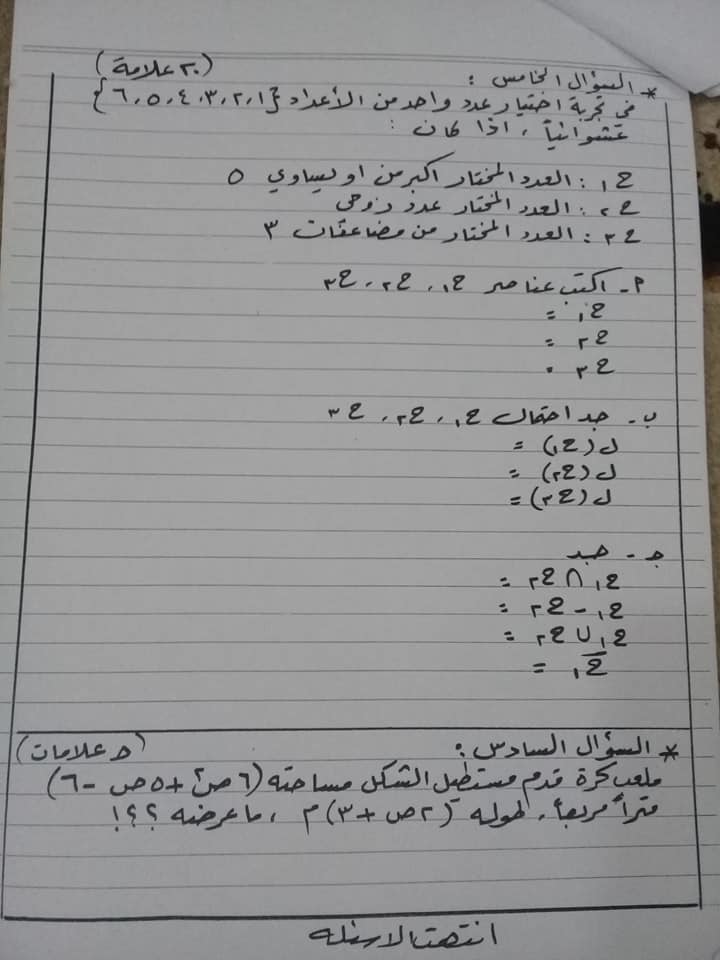 * السؤال الخامس : (٢٠ علامة)
في تجربة اختيار عدد واحد من الأعداد {١،٢،٣،٤،٥،٦}
عشوائياً ، اذا كان :
ح١ : العدد المختار اكبر من او يساوي ٥
ح٢ : العدد المختار عدد زوجي
ح٣ : العدد المختار من مضاعفات ٣
٢- اكتب عناصر ح١، ح٢، ح٣
ح١ =
ح٢ =
ح٣ =
ب- جد احتمال ح١، ح٢، ح٣
ل (ح١) =
ل (ح٢) =
ل (ح٣) =
جـ- جد
ح١ ∩ ح٢ =
ح١ - ح٢ =
ح١ ∪ ح٢ =
ح̅١ =
* السؤال السادس : (٥ علامات)
ملعب كرة قدم مستطيل الشكل مساحته (٦ص² + ٥ص - ٦)
متراً مربعاً، طوله (٢ص + ٣) م ، ما عرضه ؟؟!
انتهت الاسئله